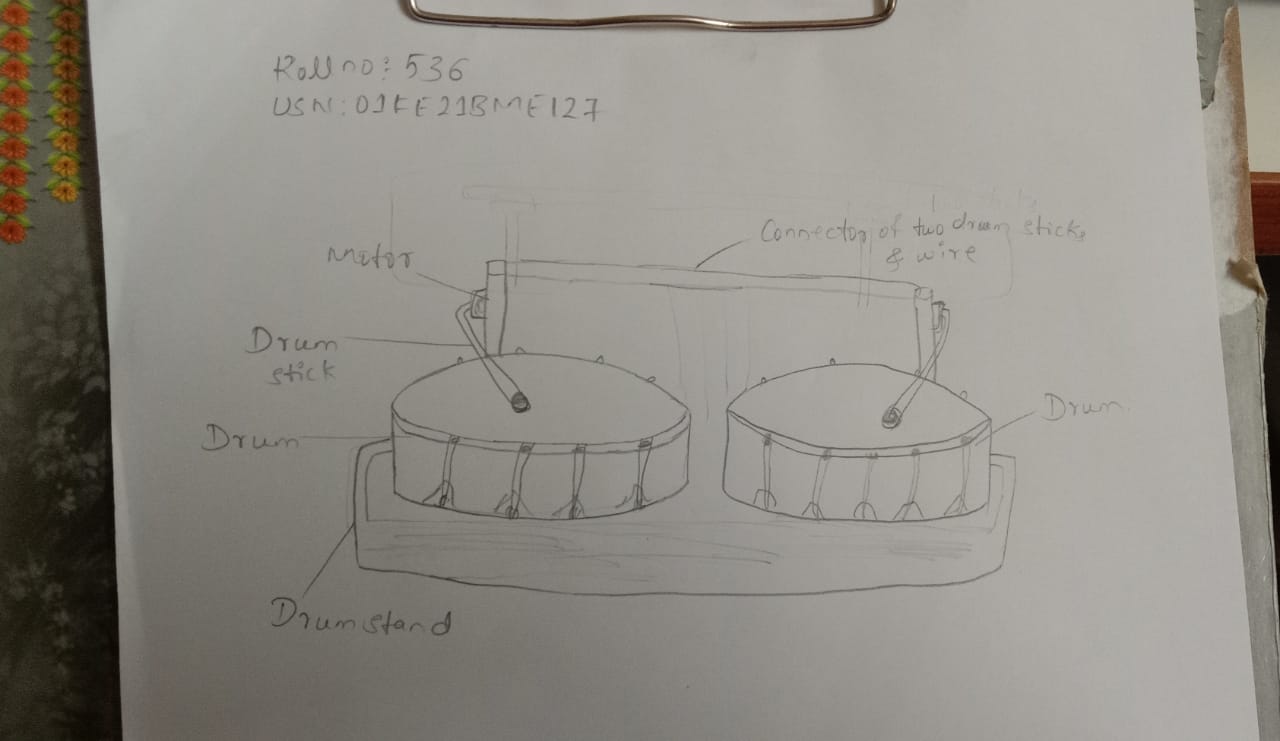 Roll no: 536
USN: 01FE21BME127
Connector of two drum sticks
& wire
Motor
Drum
stick
Drum
Drum
Drum stand